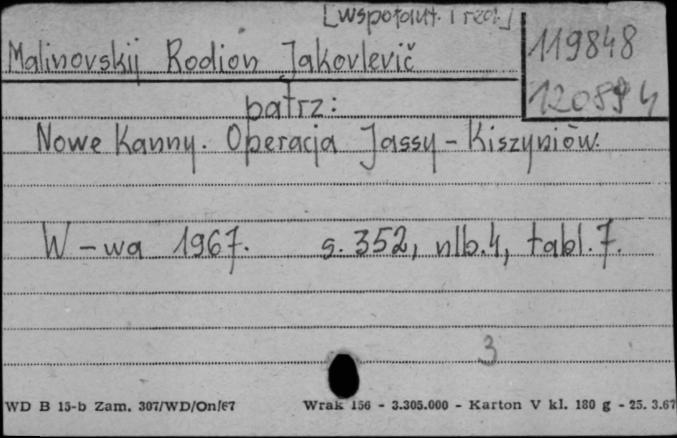 [współaut. i red.]
Malinovskij Rodion Jakovlevič
119848
patrz:
Nowe Kanny. Operacja Jassy - Kiszyniów.
W-wa 1967. s. 352, nlb. 4, tabl. 7.
3
WD B 15-b Zam. 307/WD/On/67 Wrak 156 - 3.305.000 - Karton V kl. 180 g - 25. 3.67